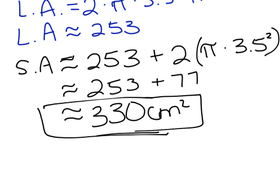 L.A. = 2 · π · 3.5
L.A ≈ 253
S.A ≈ 253 + 2(π · 3.5²)
≈ 253 + 77
≈ 330cm²